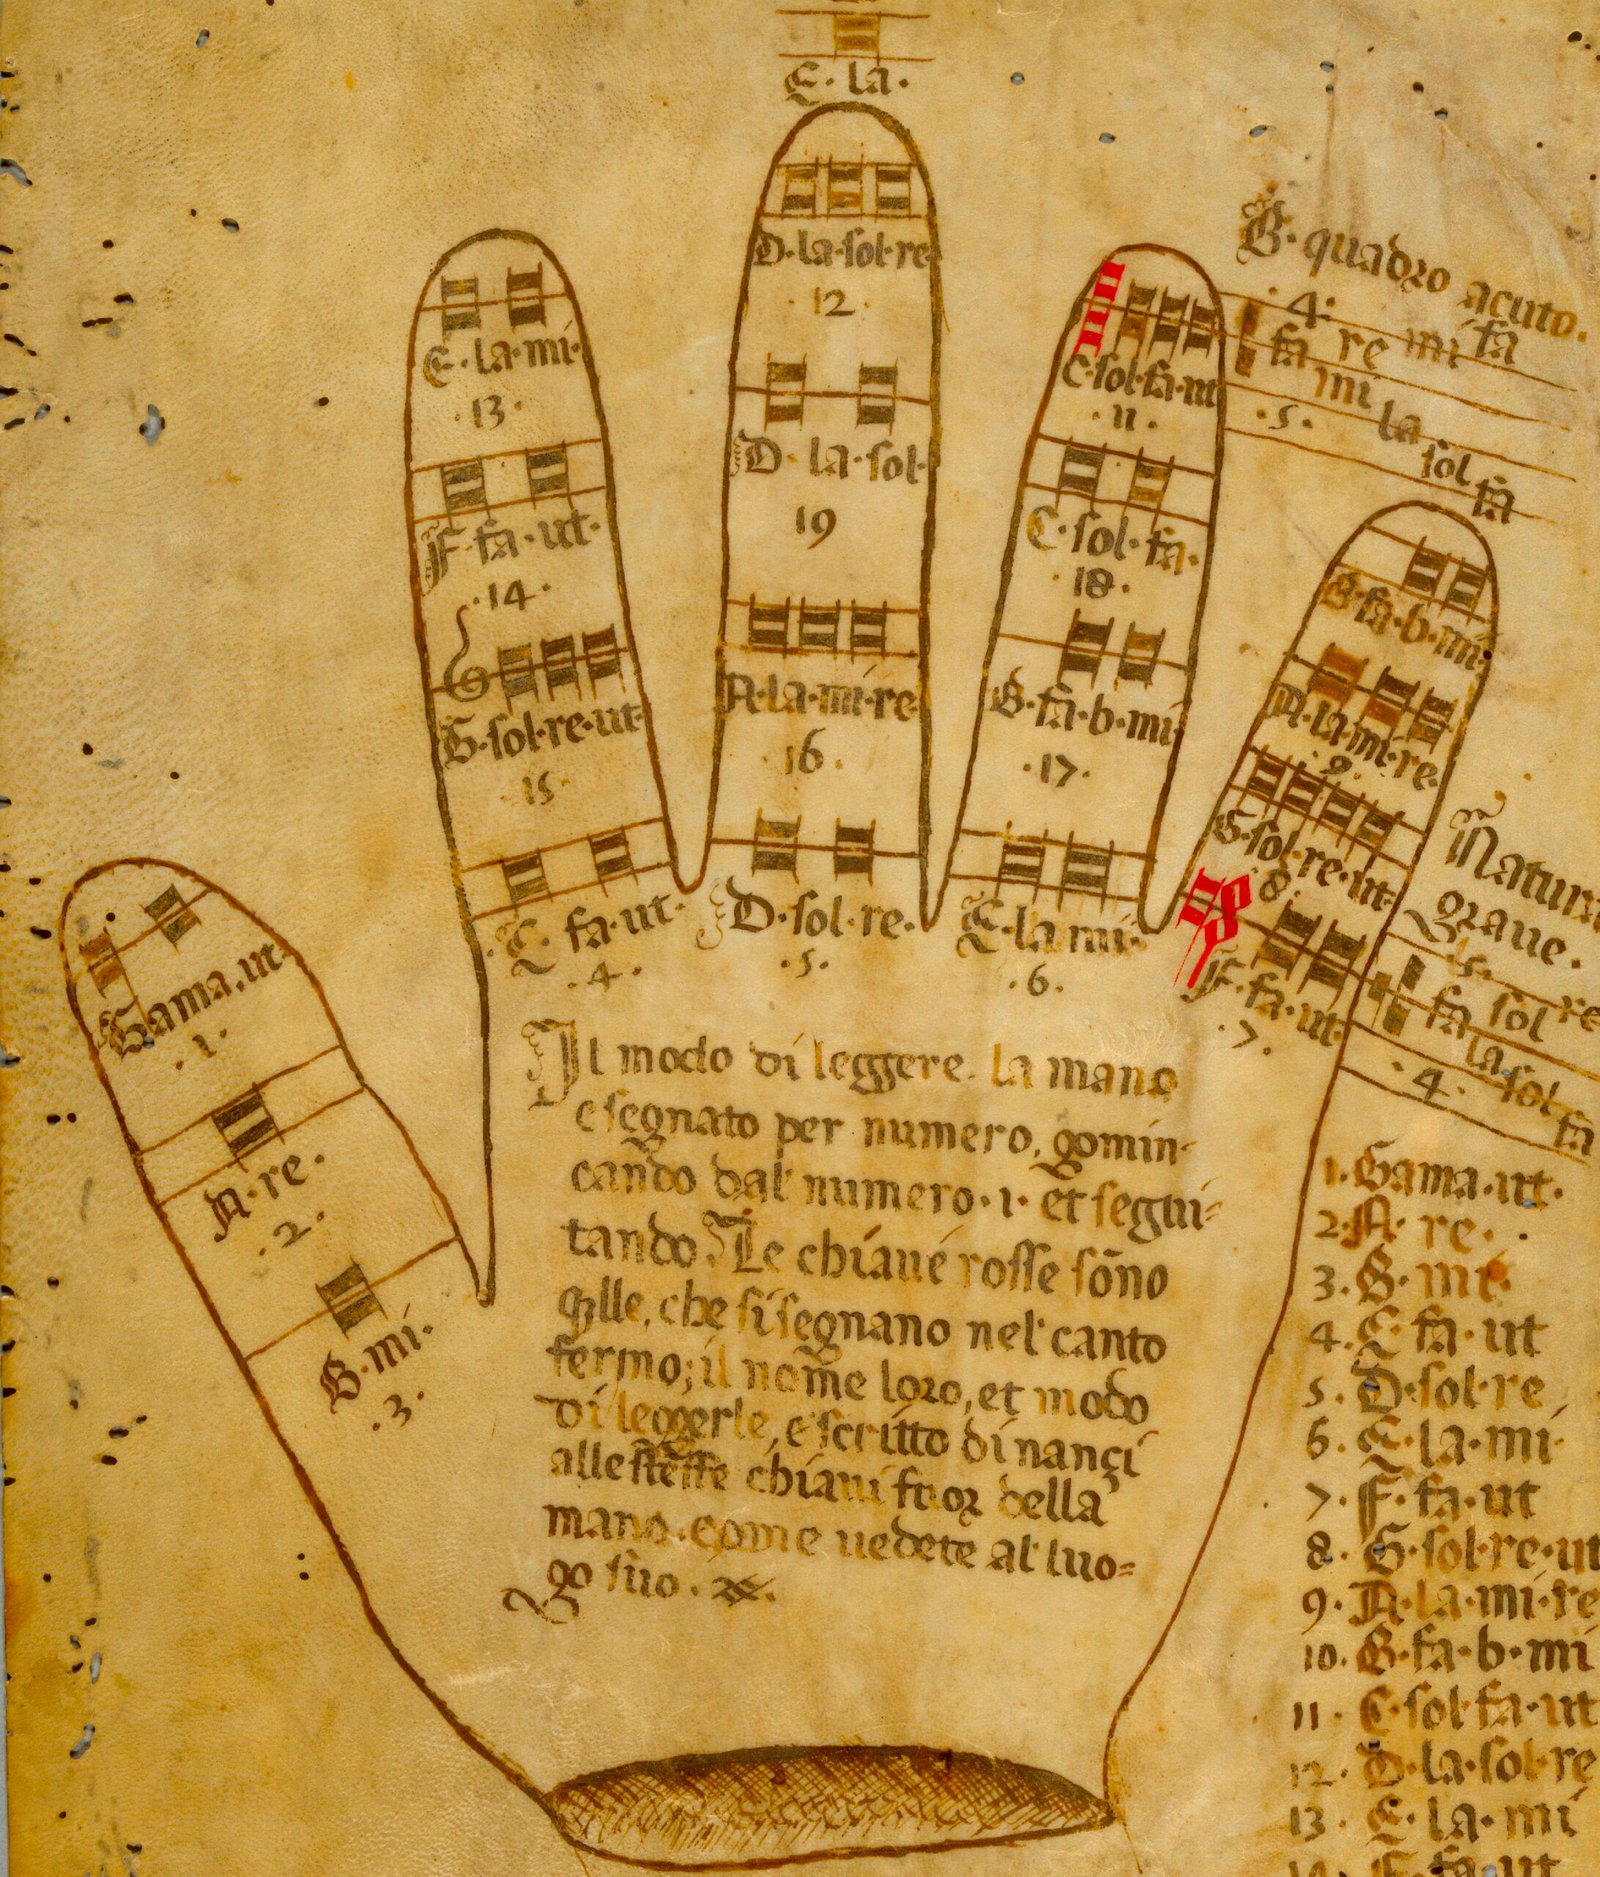 E· la·
D·la·sol·re
·12·
D· la·sol·
19
A·la·mi·re
·16·
D·sol·re·
·5·
E·la·mi·
·13·
F·fa·ut·
·14·
G·sol·re·ut
·15·
C·fa·ut·
·4·
C·sol·fa·ut
·11·
C·sol·fa·
·18·
B·fa·b·mi
·17·
E·la·mi·
·6·
B·fa·b·mi·
A·la·mi·re·
·9·
G·sol·re·ut
·8·
F·fa·ut·
·7·
Gama·ut·
·1·
A·re·
·2·
B·mi·
·3·
B· quadro acuto.
·4·
fa re mi fa
mi
·5· la
sol
fa
Natura
graue.
·5· re
fa sol
la sol
·4· sol
fa
Il modo di leggere la mano
e segnato per numero, gomin-
cando dal numero·1· et segui=
tando. Le chiaue rosse sōno
qlle, che si segnano nel canto
fermo; il nome loro, et modo
di leggerle, e scritto dinançi
alle stesse chiaui fuor della
mano. come uedete al luo=
go suo.
1. Gama·ut·
2· A· re·
3· B· mi·
4· C· fa·ut
5· D·sol·re
6· E·la·mi
7· F·fa·ut
8· G·sol·re·ut
9· A·la·mi·re
10· B·fa·b·mi
11· C·sol·fa·ut
12· D·la·sol·re
13· E·la·mi
14· F·fa·ut